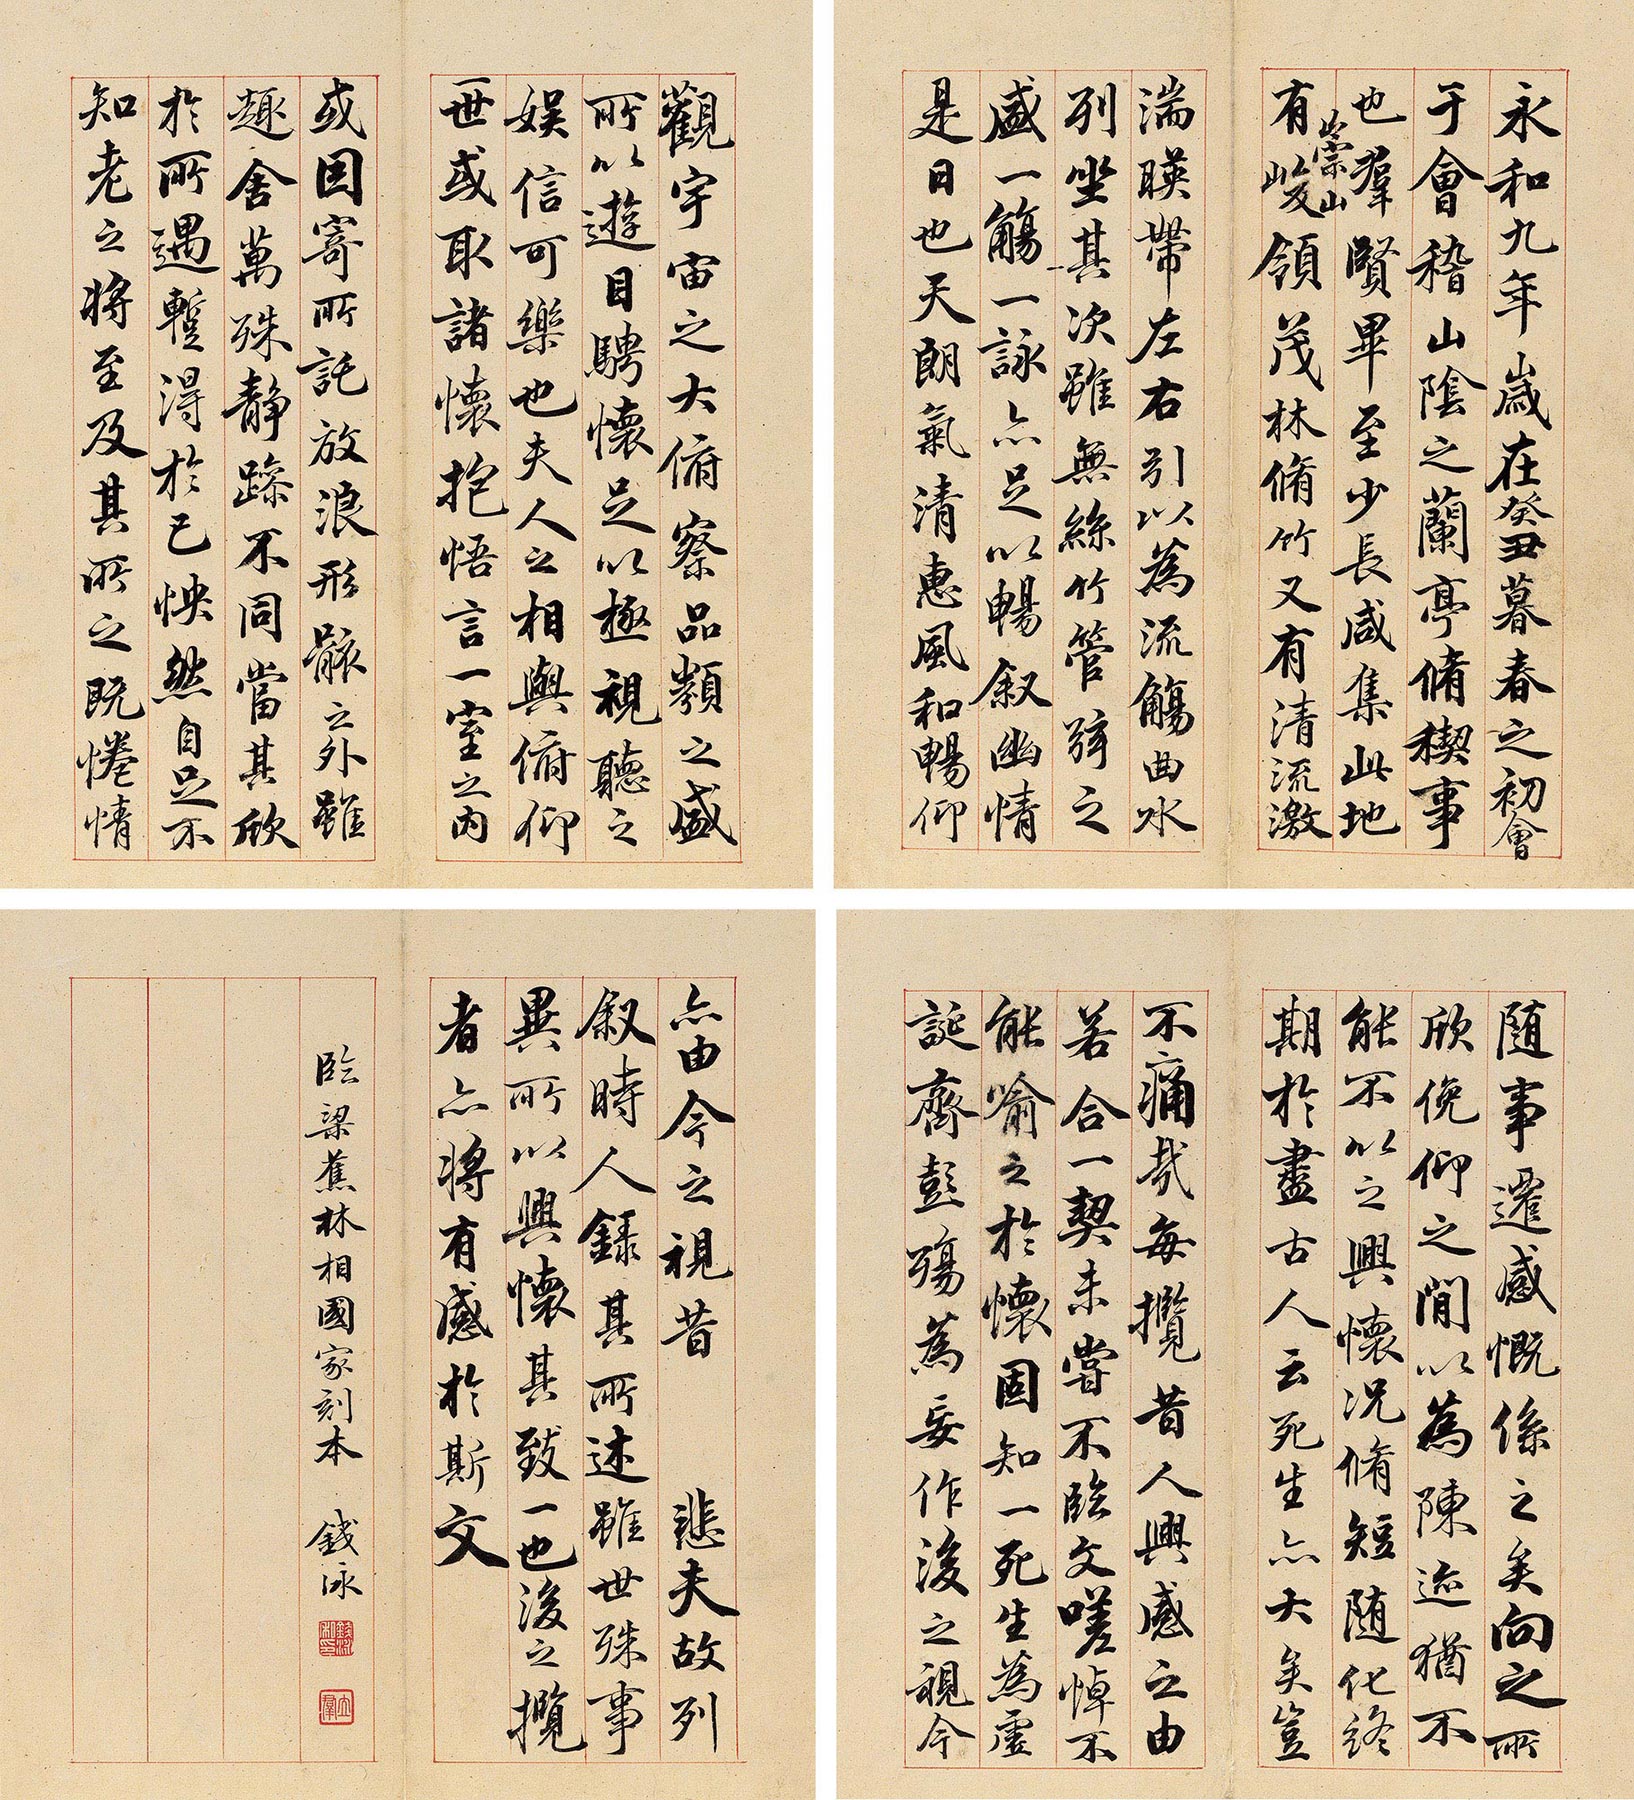 永和九年歲在癸丑暮春之初會
于會稽山陰之蘭亭脩稧事
也羣賢畢至少長咸集此地
有崇山峻領茂林脩竹又有清流激
湍暎帶左右引以為流觴曲水
列坐其次雖無絲竹管弦之
盛一觴一詠亦足以暢叙幽情
是日也天朗氣清惠風和暢仰
觀宇宙之大俯察品類之盛
所以遊目騁懷足以極視聽之
娛信可樂也夫人之相與俯仰
一世或取諸懷抱悟言一室之內
或因寄所託放浪形骸之外雖
趣舍萬殊静躁不同當其欣
於所遇蹔得於己怏然自足不
知老之將至及其所之既惓情
隨事遷感慨係之矣向之所
欣俛仰之閒以為陳迹猶不
能不以之興懷況脩短隨化終
期於盡古人云死生亦大矣豈
不痛哉每攬昔人興感之由
若合一契未嘗不臨文嗟悼不
能喻之於懷固知一死生為虛
誕齊彭殤為妄作後之視今
亦由今之視昔 悲夫故列
叙時人錄其所述雖世殊事
異所以興懷其致一也後之攬
者亦將有感於斯文
臨梁蕉林相國家刻本 錢泳
錢泳私印
立羣